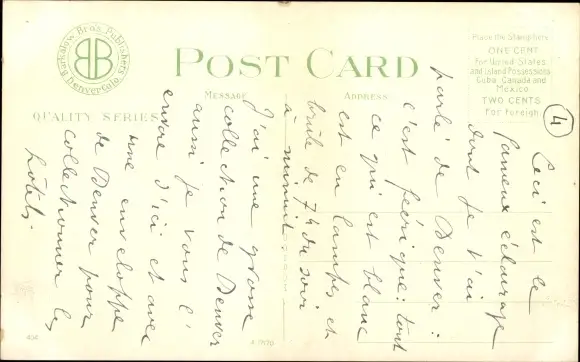 Barkalow Bros. Publishers
Denver Colo.
BB
POST CARD
MESSAGE
ADDRESS
QUALITY SERIES
Place the Stamp here
ONE CENT
For United States
and Island Possessions
Cuba Canada and
Mexico
TWO CENTS
For Foreign
4
Ceci est le
fameux éclairage
dont je t'ai
parlé de Denver :
c'est féerique : tout
ce qui est blanc
est en lampes et
brûle de 7h du soir
à minuit
J'ai une grosse
collection de Denver
aussi je vous l'
envoie d'ici et avec
une enveloppe
de Denver pour
collectionner les
hôtels.